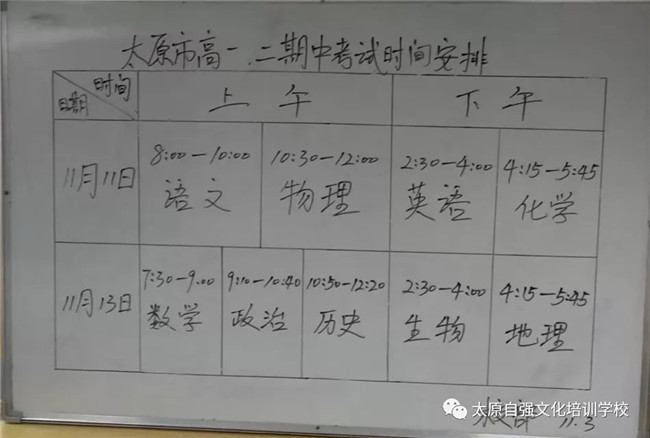 太原市高一.二期中考试时间安排
时间
日期
上午
下午
11月11日
8:00—10:00
语文
10:30—12:00
物理
2:30—4:00
英语
4:15—5:45
化学
11月13日
7:30—9:00
数学
9:10—10:40
政治
10:50—12:20
历史
2:30—4:00
生物
4:15—5:45
地理
11.3
太原自强文化培训学校